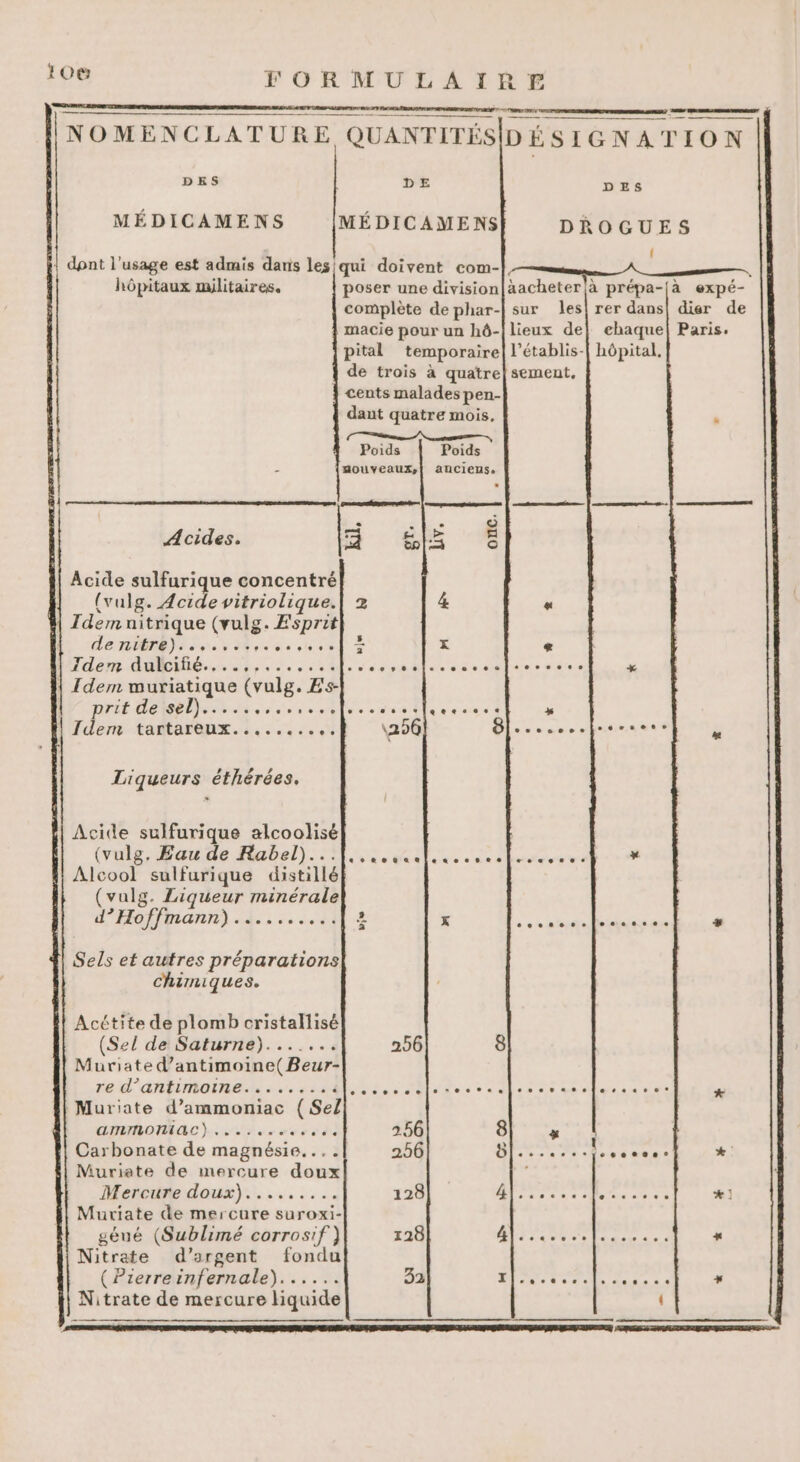 106 FORMULAIRE
NOMENCLATURE QUANTITÉS DÉSIGNATION
DES DE DES
MÉDICAMENS MÉDICAMENS DROGUES
dont l'usage est admis dans les qui doivent com-
hôpitaux militaires. poser une division à acheter à prépa- à expé-
complète de phar- sur les rer dans dier de
macie pour un hô- lieux de chaque Paris.
pital temporaire l'établis- hôpital.
de trois à quatre sement.
cents malades pen-
dant quatre mois.
Poids Poids
nouveaux, anciens.
Acides. kil. gr. liv. onc.
Acide sulfurique concentré
(vulg. Acide vitriolique. 2 4 *
Idem nitrique (vulg. Esprit
de nitre)............... ½ 1 *
Idem dulcifié.............. *
Idem muriatique (vulg. Es-
prit de sel)............... *
Idem tartareux........... 256 8 .............. *
Liqueurs éthérées.
Acide sulfurique alcoolisé
(vulg. Eau de Rabel)... .................... *
Alcool sulfurique distillé
(vulg. Liqueur minérale
d'Hoffmann).......... ½ 1 .............. *
Sels et autres préparations
chimiques.
Acétite de plomb cristallisé
(Sel de Saturne)....... 256 8
Muriate d'antimoine (Beur-
re d'antimoine......... ........................... *
Muriate d'ammoniac (Sel
ammoniac)............. 256 8 *
Carbonate de magnésie.... 256 8 .............. *
Muriate de mercure doux
Mercure doux)......... 128 4 .............. *
Muriate de mercure suroxi-
géné (Sublimé corrosif) 128 4 .............. *
Nitrate d'argent fondu
(Pierre infernale)...... 32 1 .............. *
Nitrate de mercure liquide